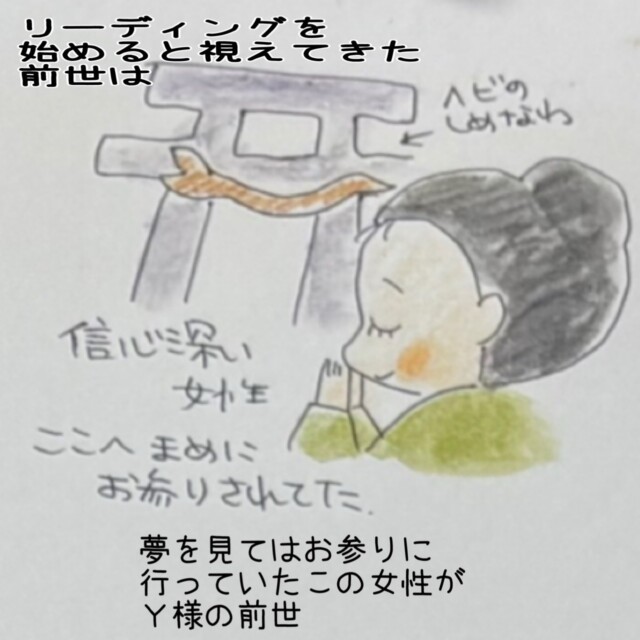 リーディングを
始めると視えてきた
前世は
ヘビの
しめなわ
信心深い
女性
ここへ まめに
お参りされてた.
夢を見てはお参りに
行っていたこの女性が
Y様の前世